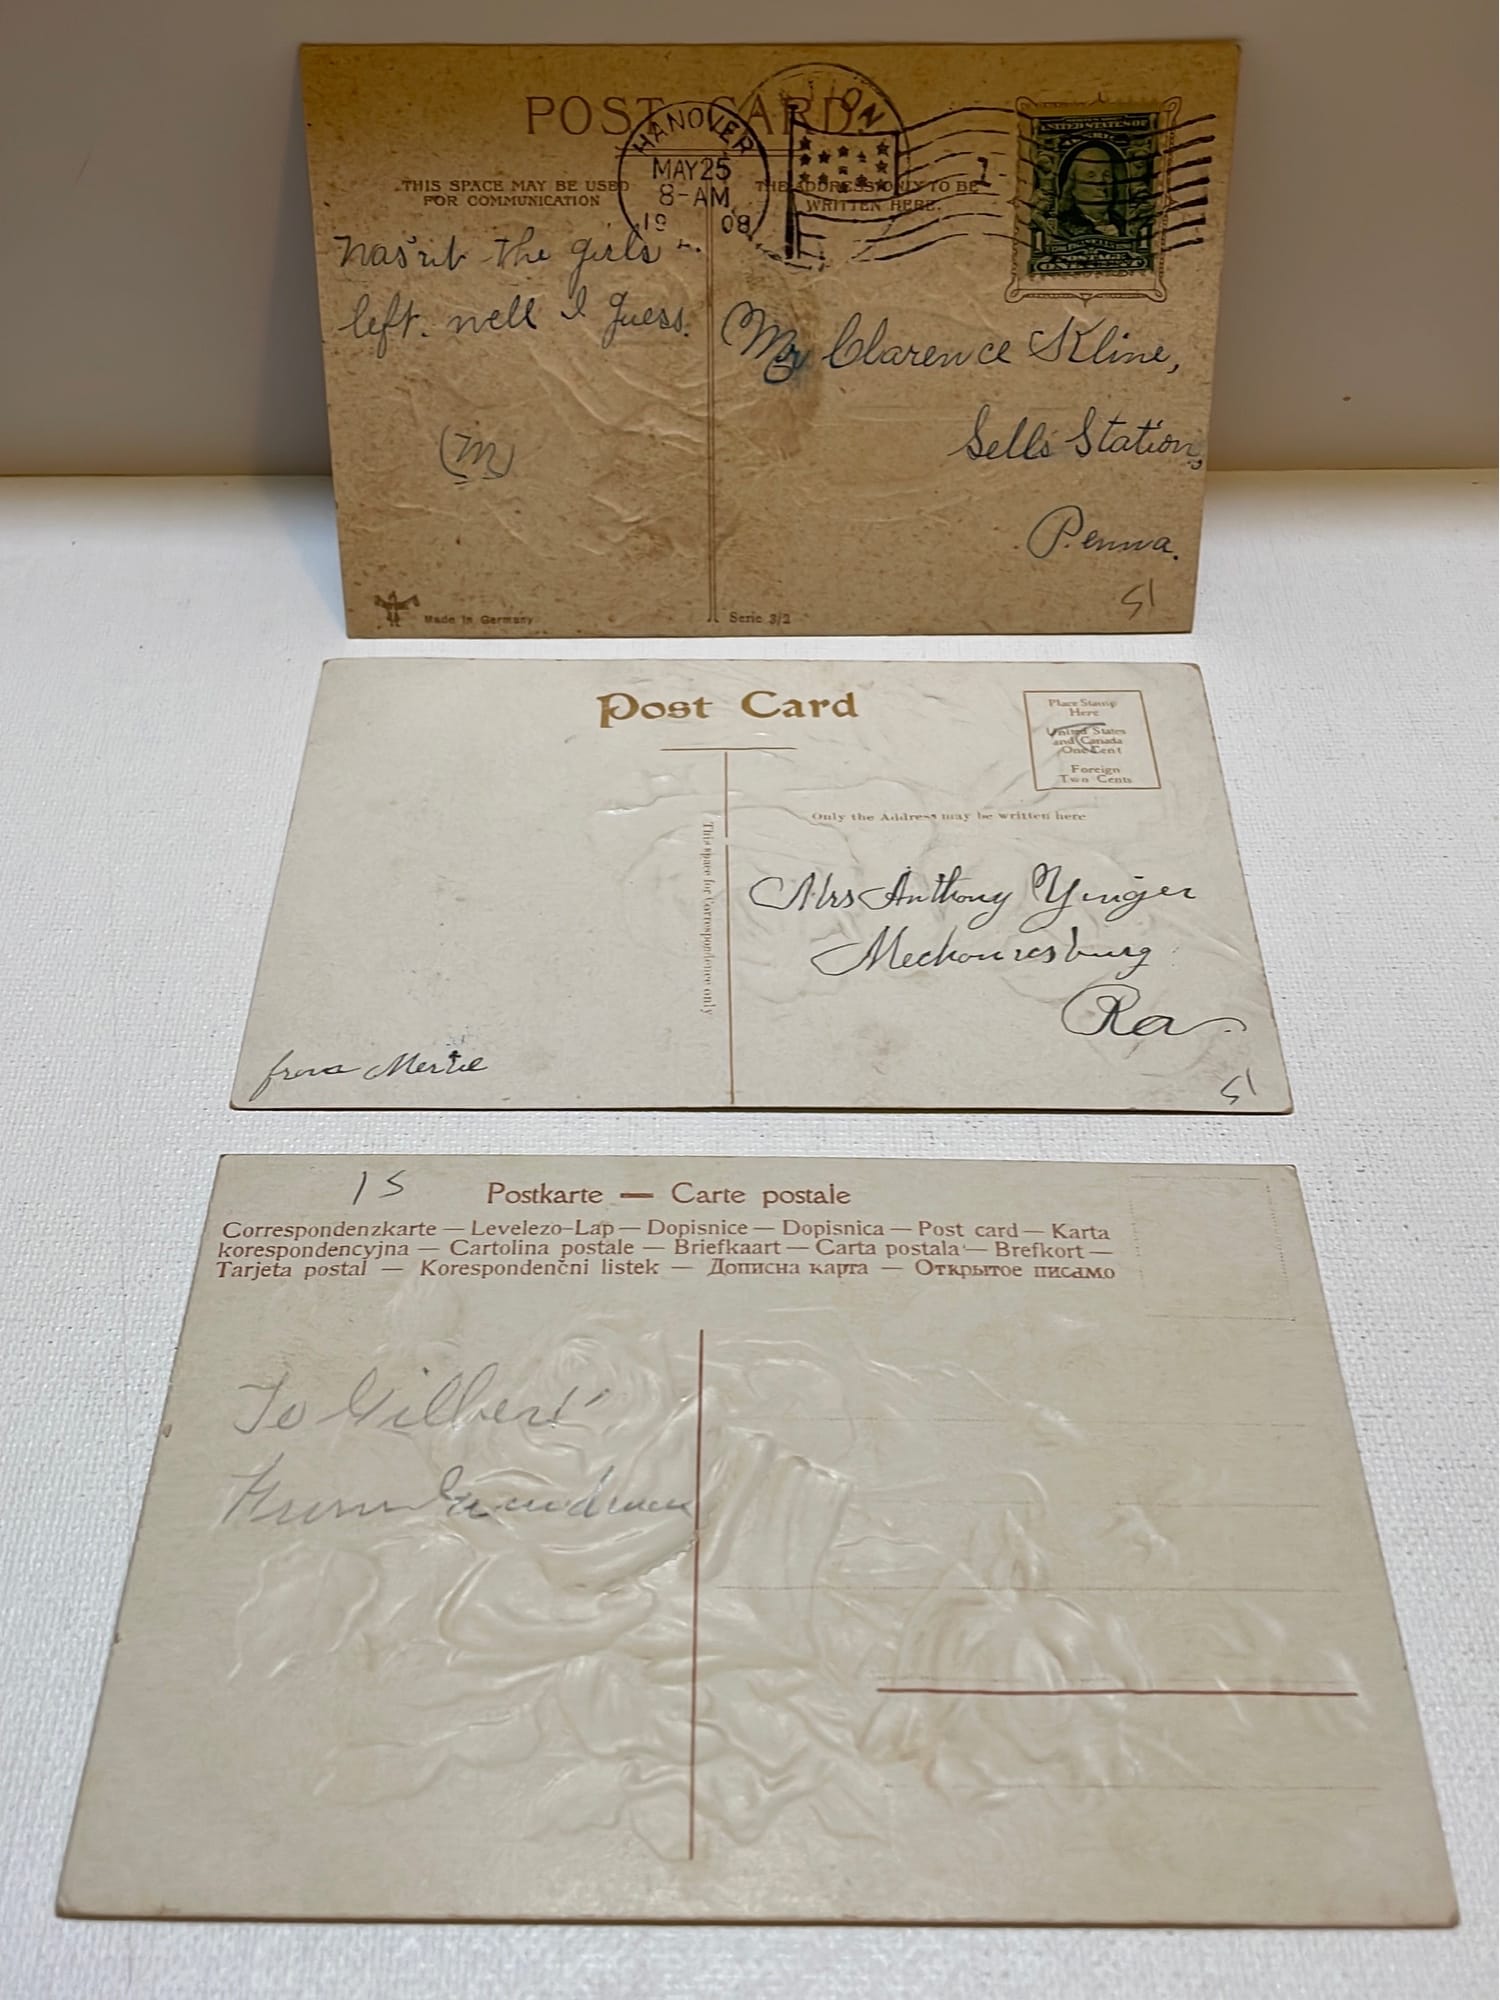 POST CARD.
HANOVER
MAY 25
8-AM
1908
THIS SPACE MAY BE USED
FOR COMMUNICATION
THE ADDRESS ONLY TO BE
WRITTEN HERE.
the girls
left. well I guess.
(M)
Mr Clarence Kline,
Sells Station,
Penna.
51
Made in Germany
Serie 3/2
Post Card
Place Stamp
Here
United States
and Canada
One Cent
Foreign
Two Cents
Only the Address may be written here
This space for Correspondence only
Mrs Anthony Yinger
Mechanicsburg
Pa.
from Mertie
51
15
Postkarte — Carte postale
Correspondenzkarte — Levelezo-Lap — Dopisnice — Dopisnica — Post card — Karta
korespondencyjna — Cartolina postale — Briefkaart — Carta postala — Brefkort —
Tarjeta postal — Korespondenčni listek — Дописна карта — Открытое писмо
To Gilbert
From